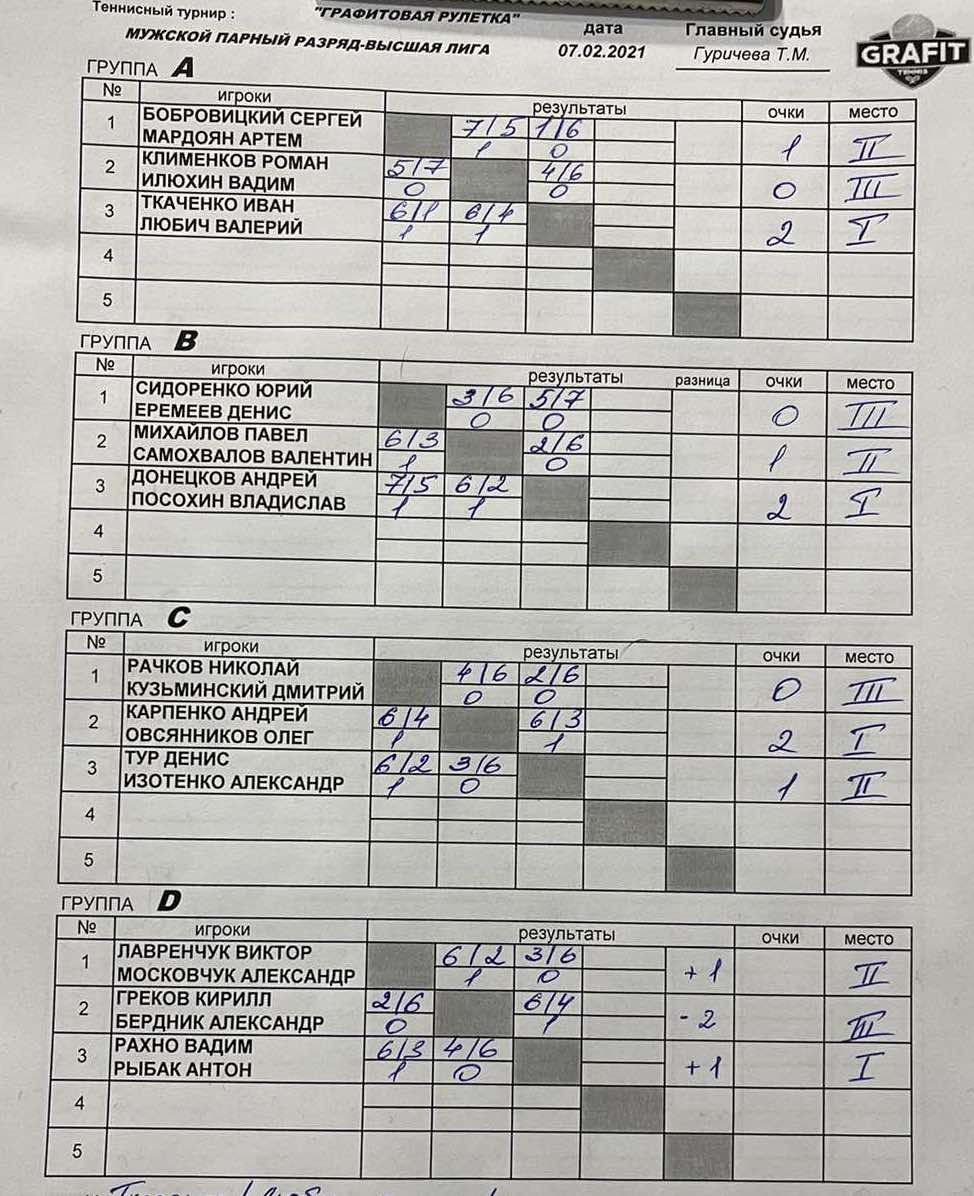 Теннисный турнир : "ГРАФИТОВАЯ РУЛЕТКА" дата Главный судья
МУЖСКОЙ ПАРНЫЙ РАЗРЯД-ВЫСШАЯ ЛИГА 07.02.2021 Гуричева Т.М.
GRAFIT
TENNIS
ГРУППА A
№ игроки результаты очки место
1 БОБРОВИЦКИЙ СЕРГЕЙ 7/5 1/6
МАРДОЯН АРТЕМ 1 0 1 II
2 КЛИМЕНКОВ РОМАН 5/7 4/6
ИЛЮХИН ВАДИМ 0 0 0 III
3 ТКАЧЕНКО ИВАН 6/1 6/4
ЛЮБИЧ ВАЛЕРИЙ 1 1 2 I
4
5
ГРУППА B
№ игроки результаты разница очки место
1 СИДОРЕНКО ЮРИЙ 3/6 5/7
ЕРЕМЕЕВ ДЕНИС 0 0 0 III
2 МИХАЙЛОВ ПАВЕЛ 6/3 2/6
САМОХВАЛОВ ВАЛЕНТИН 1 0 1 II
3 ДОНЕЦКОВ АНДРЕЙ 7/5 6/2
ПОСОХИН ВЛАДИСЛАВ 1 1 2 I
4
5
ГРУППА C
№ игроки результаты очки место
1 РАЧКОВ НИКОЛАЙ 4/6 2/6
КУЗЬМИНСКИЙ ДМИТРИЙ 0 0 0 III
2 КАРПЕНКО АНДРЕЙ 6/4 6/3
ОВСЯННИКОВ ОЛЕГ 1 1 2 I
3 ТУР ДЕНИС 6/2 3/6
ИЗОТЕНКО АЛЕКСАНДР 1 0 1 II
4
5
ГРУППА D
№ игроки результаты очки место
1 ЛАВРЕНЧУК ВИКТОР 6/2 3/6
МОСКОВЧУК АЛЕКСАНДР 1 0 +1 II
2 ГРЕКОВ КИРИЛЛ 2/6 6/4
БЕРДНИК АЛЕКСАНДР 0 1 -2 III
3 РАХНО ВАДИМ 6/3 4/6
РЫБАК АНТОН 1 0 +1 I
4
5